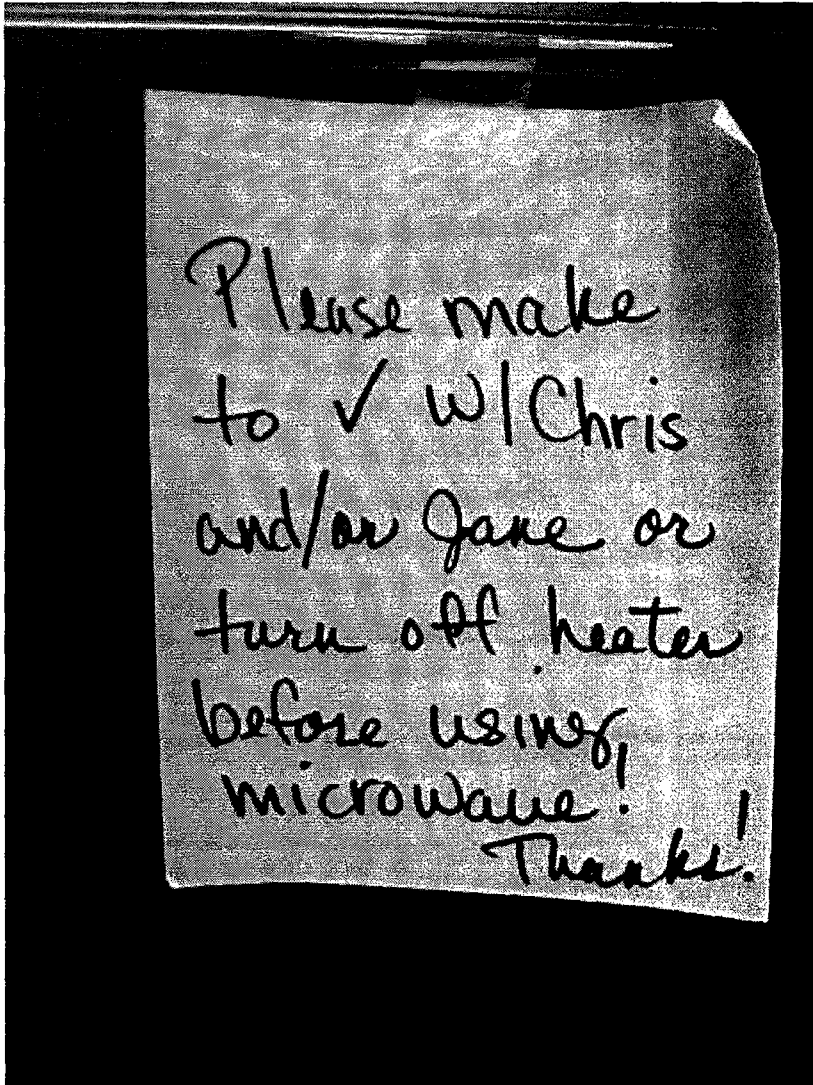 Please make
to ✓ w/Chris
and/or Jane or
turn off heater
before using
microwave!
Thanks!